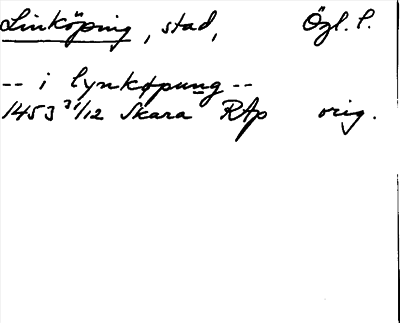 Linköping, stad, Ögl. l.
-- i lynkøpung --
1453 31/12 Skara RAp orig.